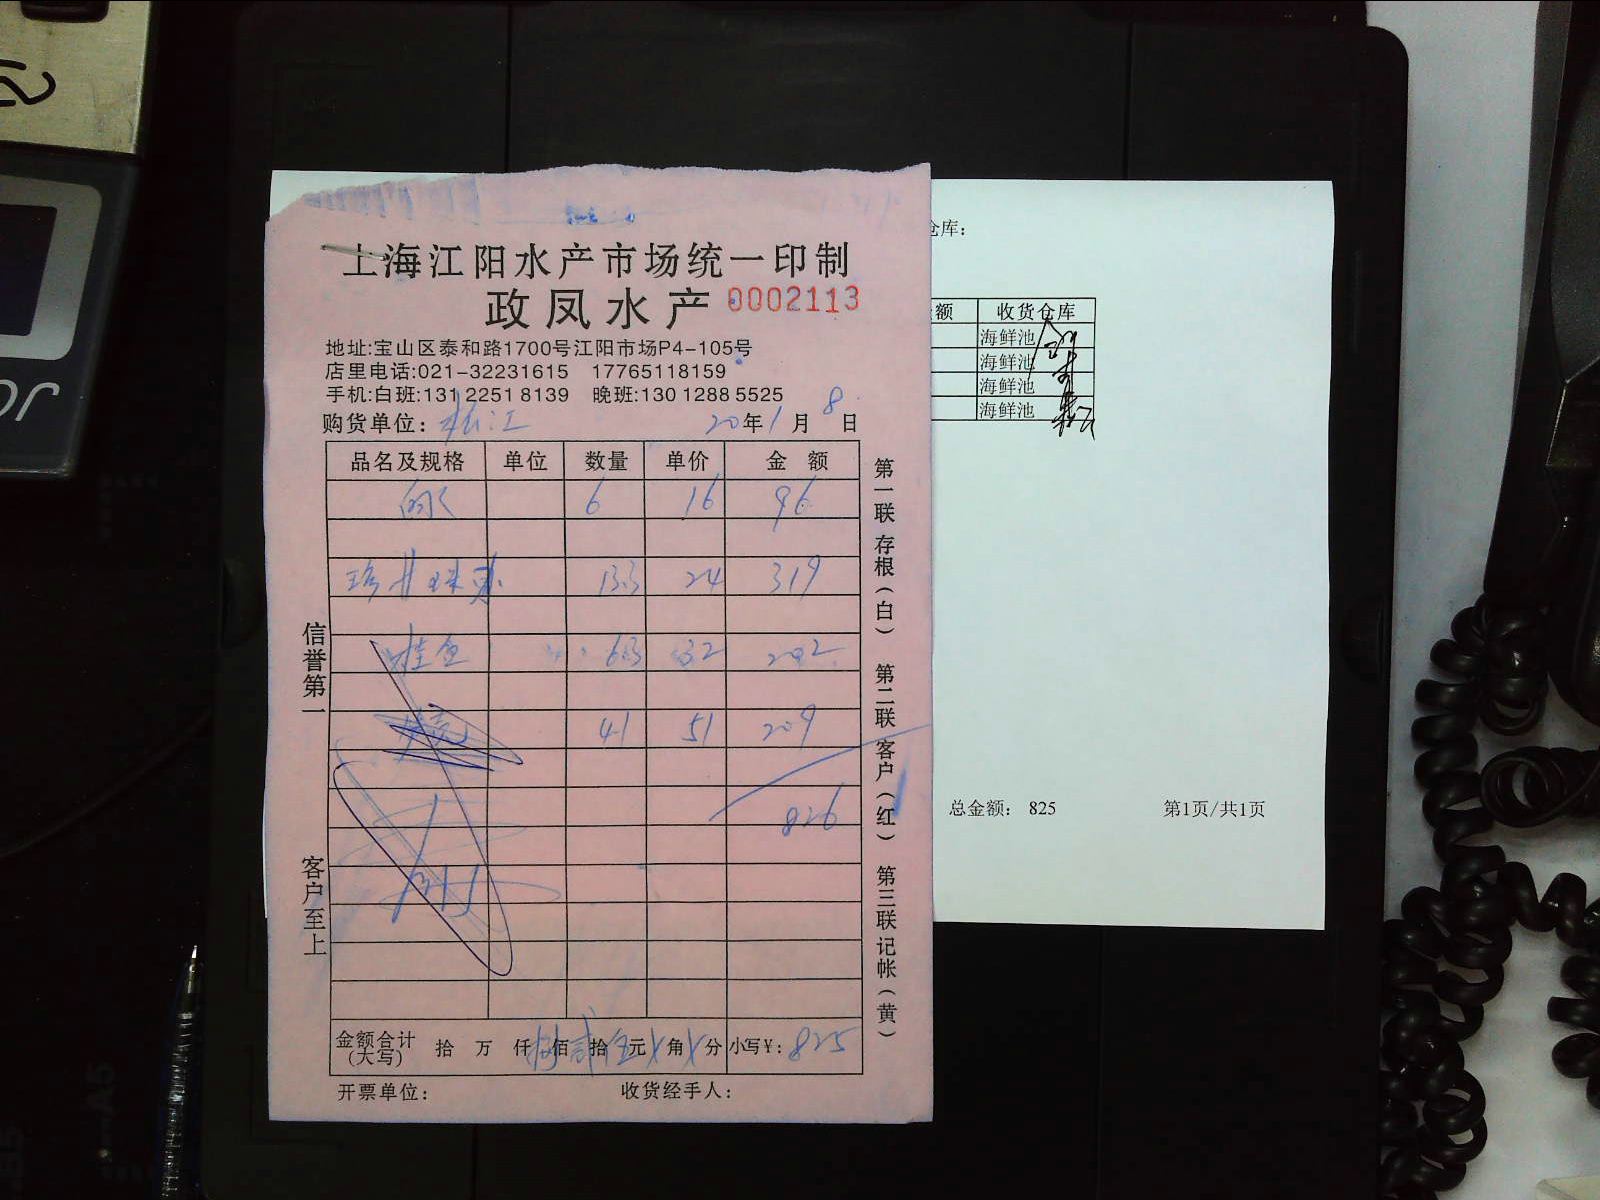 上海江阳水产市场统一印制
政凤水产 0002113
地址:宝山区泰和路1700号江阳市场P4-105号
店里电话:021-32231615 17765118159
手机:白班:131 2251 8139 晚班:130 1288 5525
购货单位: 松江 20年1月8日
品名及规格 单位 数量 单价 金额
6 16 96
珍珠 13.3 24 319
桂鱼 6.3 32 202
4.1 51 209
826
金额合计(大写) 拾 万 仟 捌佰 贰拾 伍元 角 分 小写¥: 825
开票单位: 收货经手人:
信誉第一
客户至上
第一联 存根(白)
第二联 客户(红)
第三联 记帐(黄)
仓库:
额 收货仓库
海鲜池
海鲜池
海鲜池
海鲜池
总金额: 825 第1页/共1页
A5